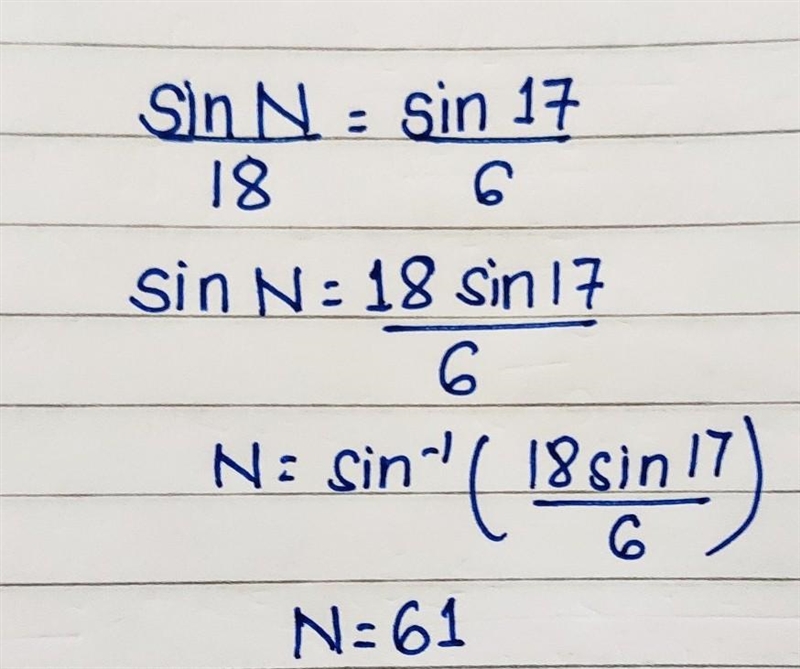 sin N = sin 17
18 6
sin N = 18 sin 17
6
N = sin⁻¹ ( 18 sin 17 )
6
N = 61